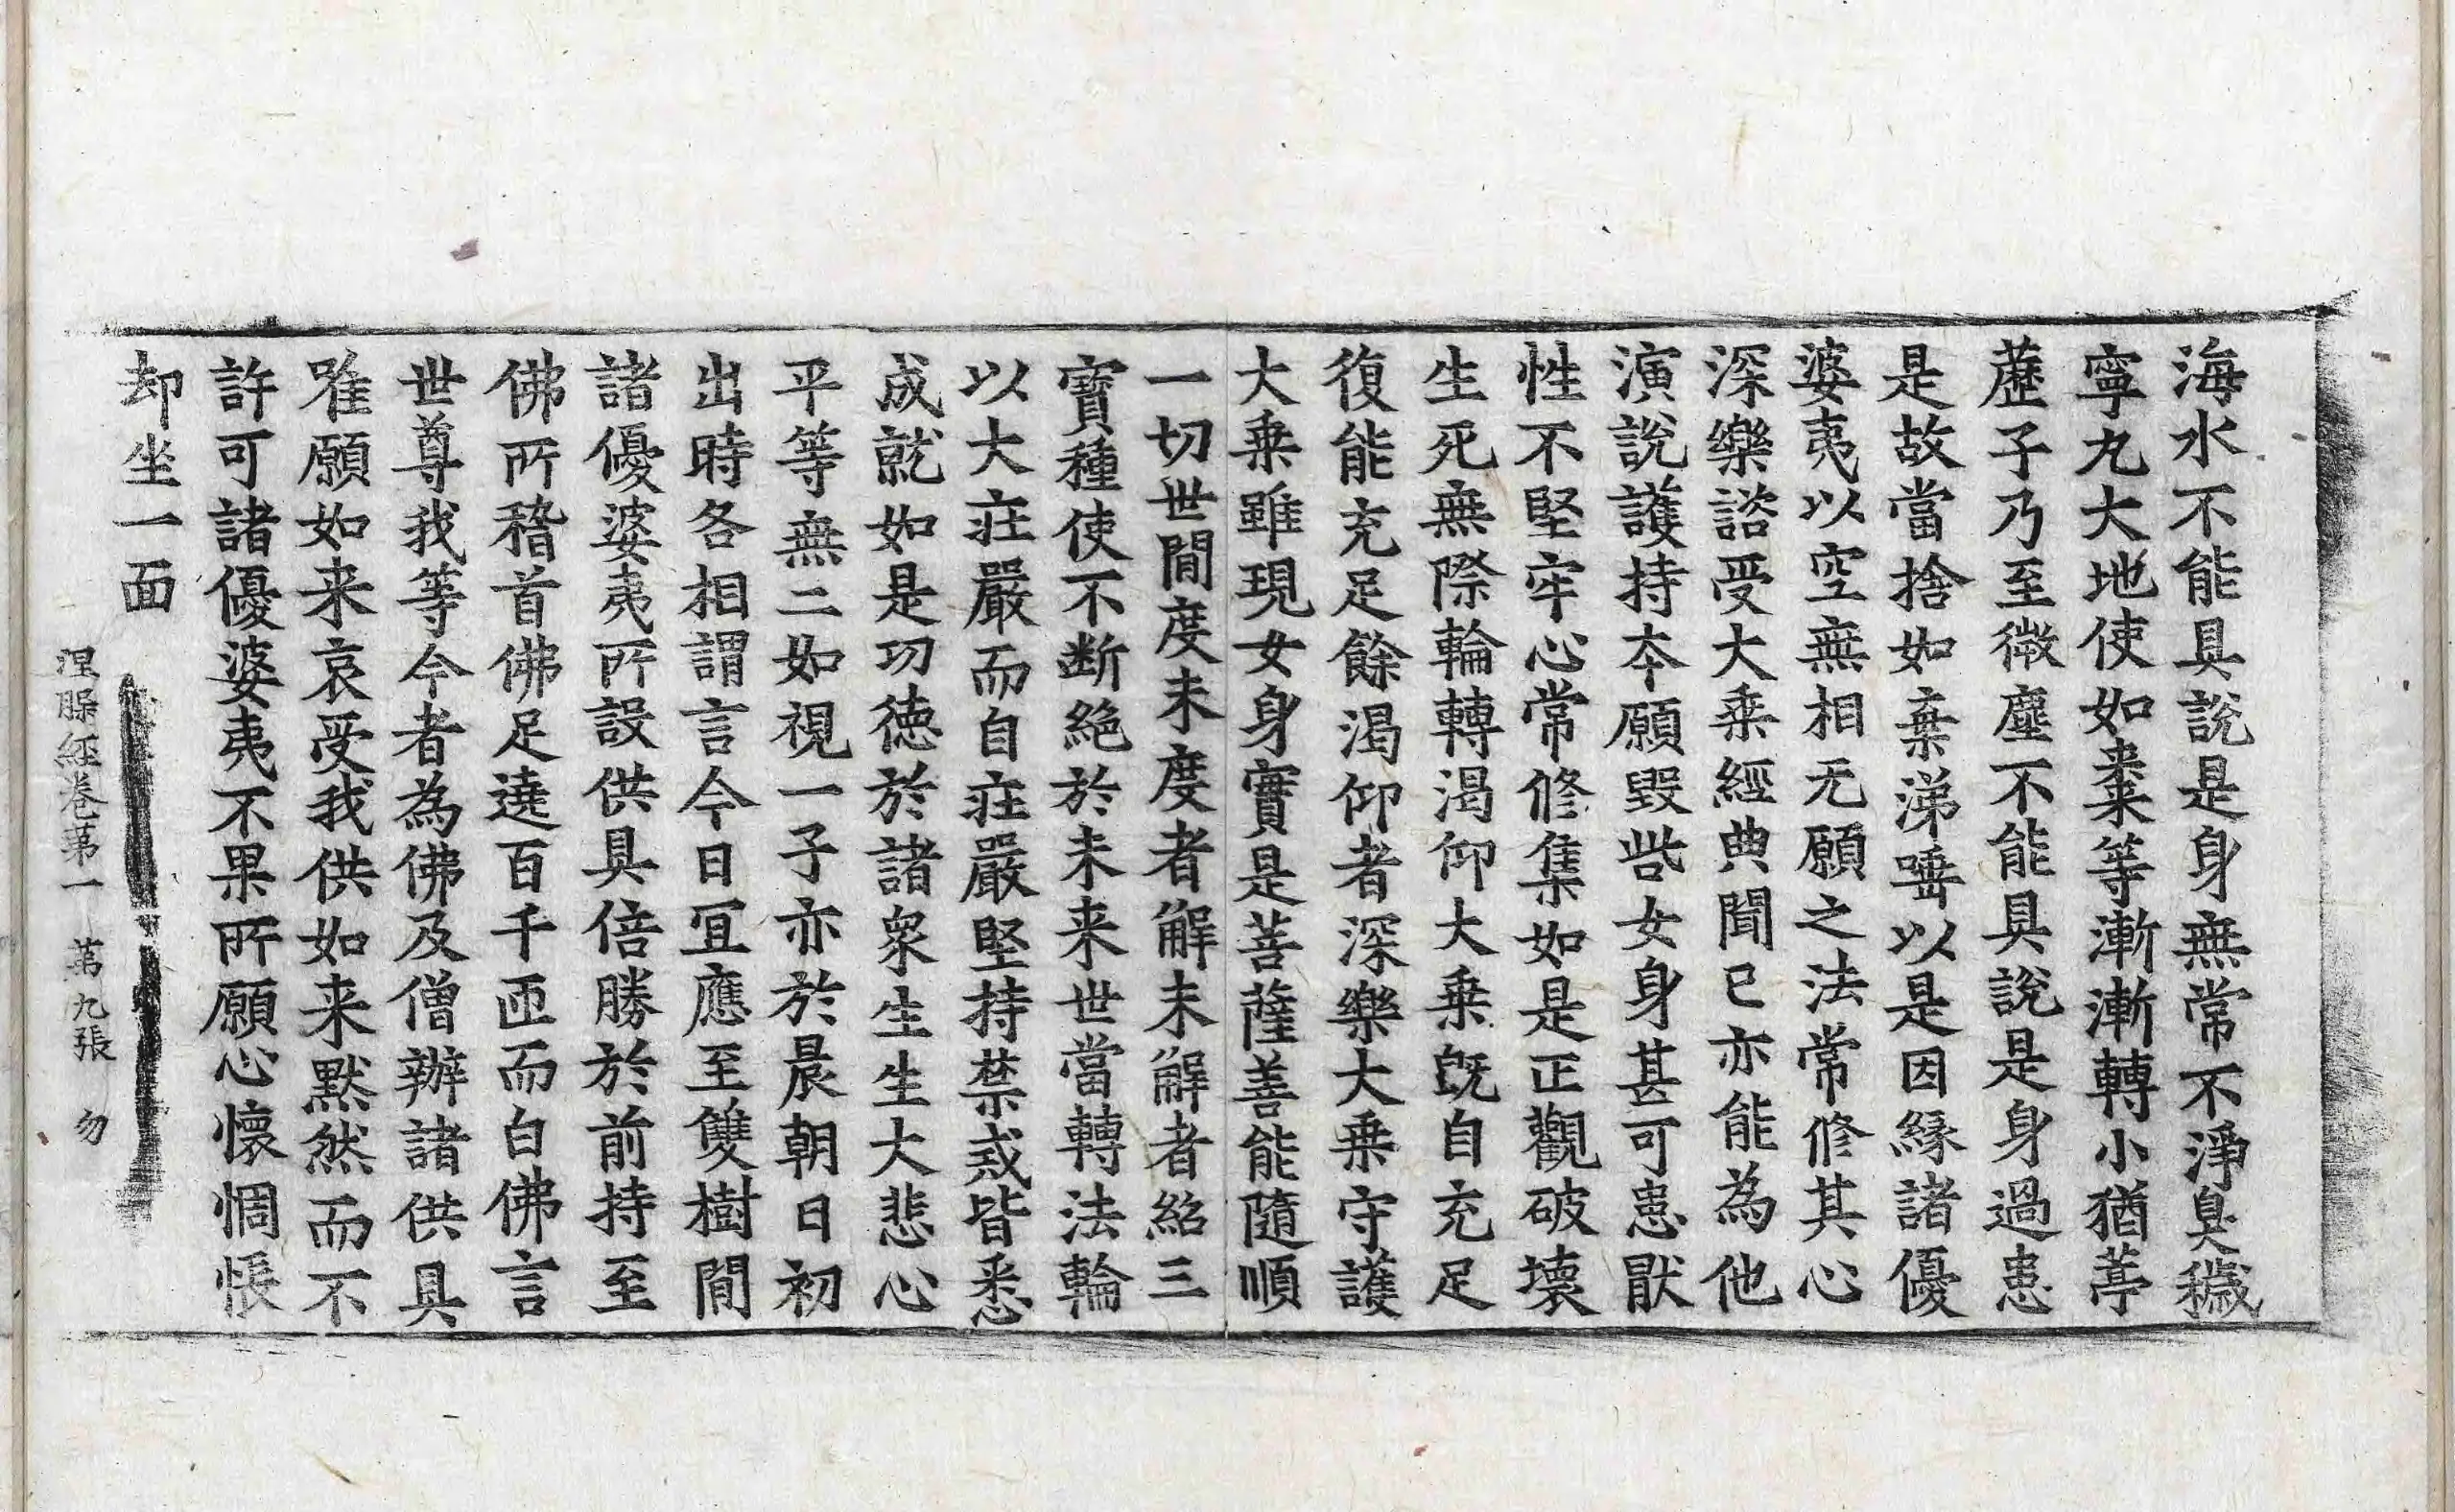 海水不能具說是身無常不淨臭穢
寧丸大地使如棗等漸漸轉小猶葶
藶子乃至微塵不能具說是身過患
是故當捨如棄涕唾以是因縁諸優
婆夷以空無相无願之法常修其心
深樂諮受大乗經典聞已亦能為他
演說護持本願毀呰女身甚可患猒
性不堅牢心常修集如是正觀破壞
生死無際輪轉渴仰大乗旣自充足
復能充足餘渴仰者深樂大乗守護
大乗雖現女身實是菩薩善能隨順
一切世間度未度者解未解者紹三
寶種使不断絶於未来世當轉法輪
以大莊嚴而自莊嚴堅持禁戒皆悉
成就如是功徳於諸衆生生大悲心
平等無二如視一子亦於晨朝日初
出時各相謂言今日冝應至雙樹間
諸優婆夷所設供具倍勝於前持至
佛所稽首佛足遶百千匝而白佛言
世尊我等今者為佛及僧辦諸供具
唯願如来哀受我供如来黙然而不
許可諸優婆夷不果所願心懷惆悵
却坐一面
涅槃經卷第一 第九張 勿